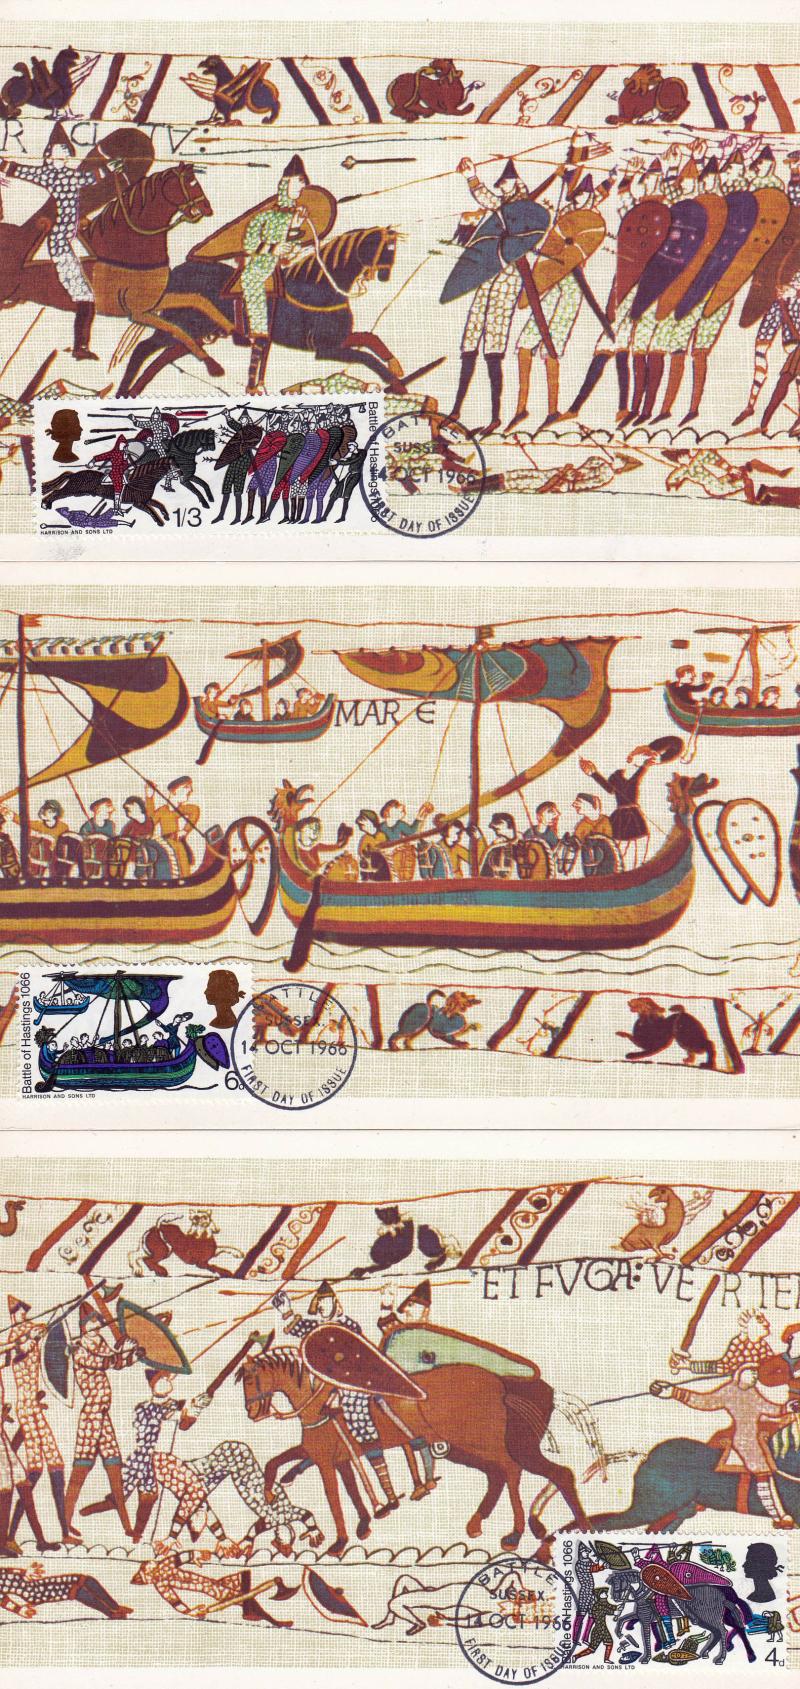 R A CI TV:
1/3
Battle of Hastings 1066
HARRISON AND SONS LTD
BATTLE
SUSSEX
14 OCT 1966
FIRST DAY OF ISSUE
MARE
Battle of Hastings 1066
6d
HARRISON AND SONS LTD
BATTLE
SUSSEX
14 OCT 1966
FIRST DAY OF ISSUE
ET FVGA: VERTER
Battle of Hastings 1066
4d
HARRISON AND SONS LTD
BATTLE
SUSSEX
14 OCT 1966
FIRST DAY OF ISSUE